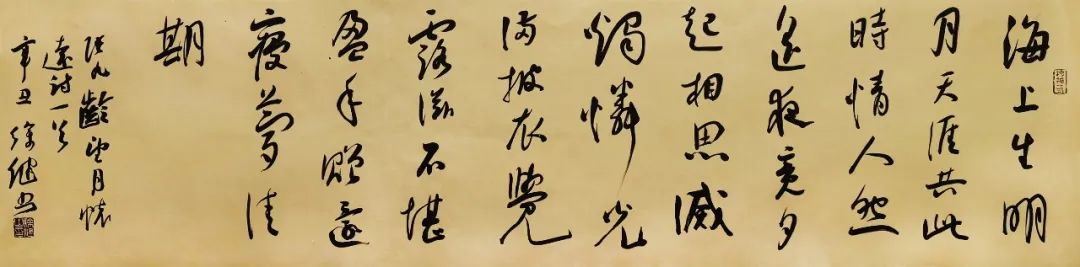 海上生明
月天涯共此
時情人怨
遙夜竟夕
起相思滅
燭憐光
滿披衣覺
露滋不堪
盈手贈還
寢夢佳
期
張九齡望月懷
遠詩一首
辛丑徐继书